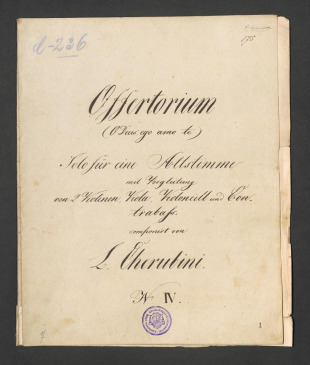 C-236
175
Offertorium
(O Deus ego amo te)
Solo für eine Altstimme
mit Begleitung
von 2 Violinen, Viola, Violoncell und Con-
trabass.
componirt von
L. Cherubini.
No IV.
1